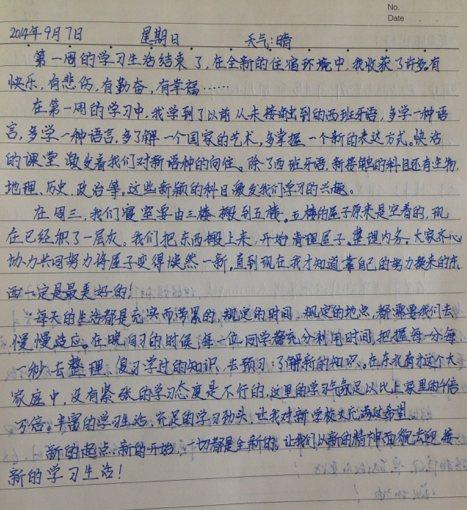 No.
Date
2014年9月7日 星期日 天气:晴
第一周的学习生活结束了,在全新的住宿环境中,我收获了许多有
快乐,有悲伤,有勤奋,有幸福……
在第一周的学习中,我学到了以前从未接触到的西班牙语,多学一种语
言,多学一种语言,多了解一个国家的艺术,多掌握一个新的表达方式,快活
的课堂激发着我们对新语种的向往。除了西班牙语,新接触的科目还有生物,
地理,历史,政治等,这些新颖的科目激发我们学习的兴趣。
在周三,我们寝室要由三楼搬到五楼。五楼的屋子原来是空着的,现
在已经积了一层灰。我们把东西搬上来,开始清理屋子,整理内务,大家齐心
协力共同努力将屋子变得焕然一新,直到现在我才知道靠自己的努力换来的东
西一定是最美好的!
每天的生活都是充实而满累的,规定的时间,规定的地点,都需要我们去
慢慢适应。在晚自习的时候,每一位同学都充分利用时间,把握每一分每
一秒去整理、复习学过的知识,去预习、了解新的知识。在东北育才这个大
家庭中,没有紧张的学习态度是不行的,这里的学习气氛足以比上家里的千倍
万倍。丰富的学习生活,充足的学习劲头,让我对新学校充满过希望
新的起点,新的开始,一切都是全新的。让我们以新的精神面貌去迎接
新的学习生活!